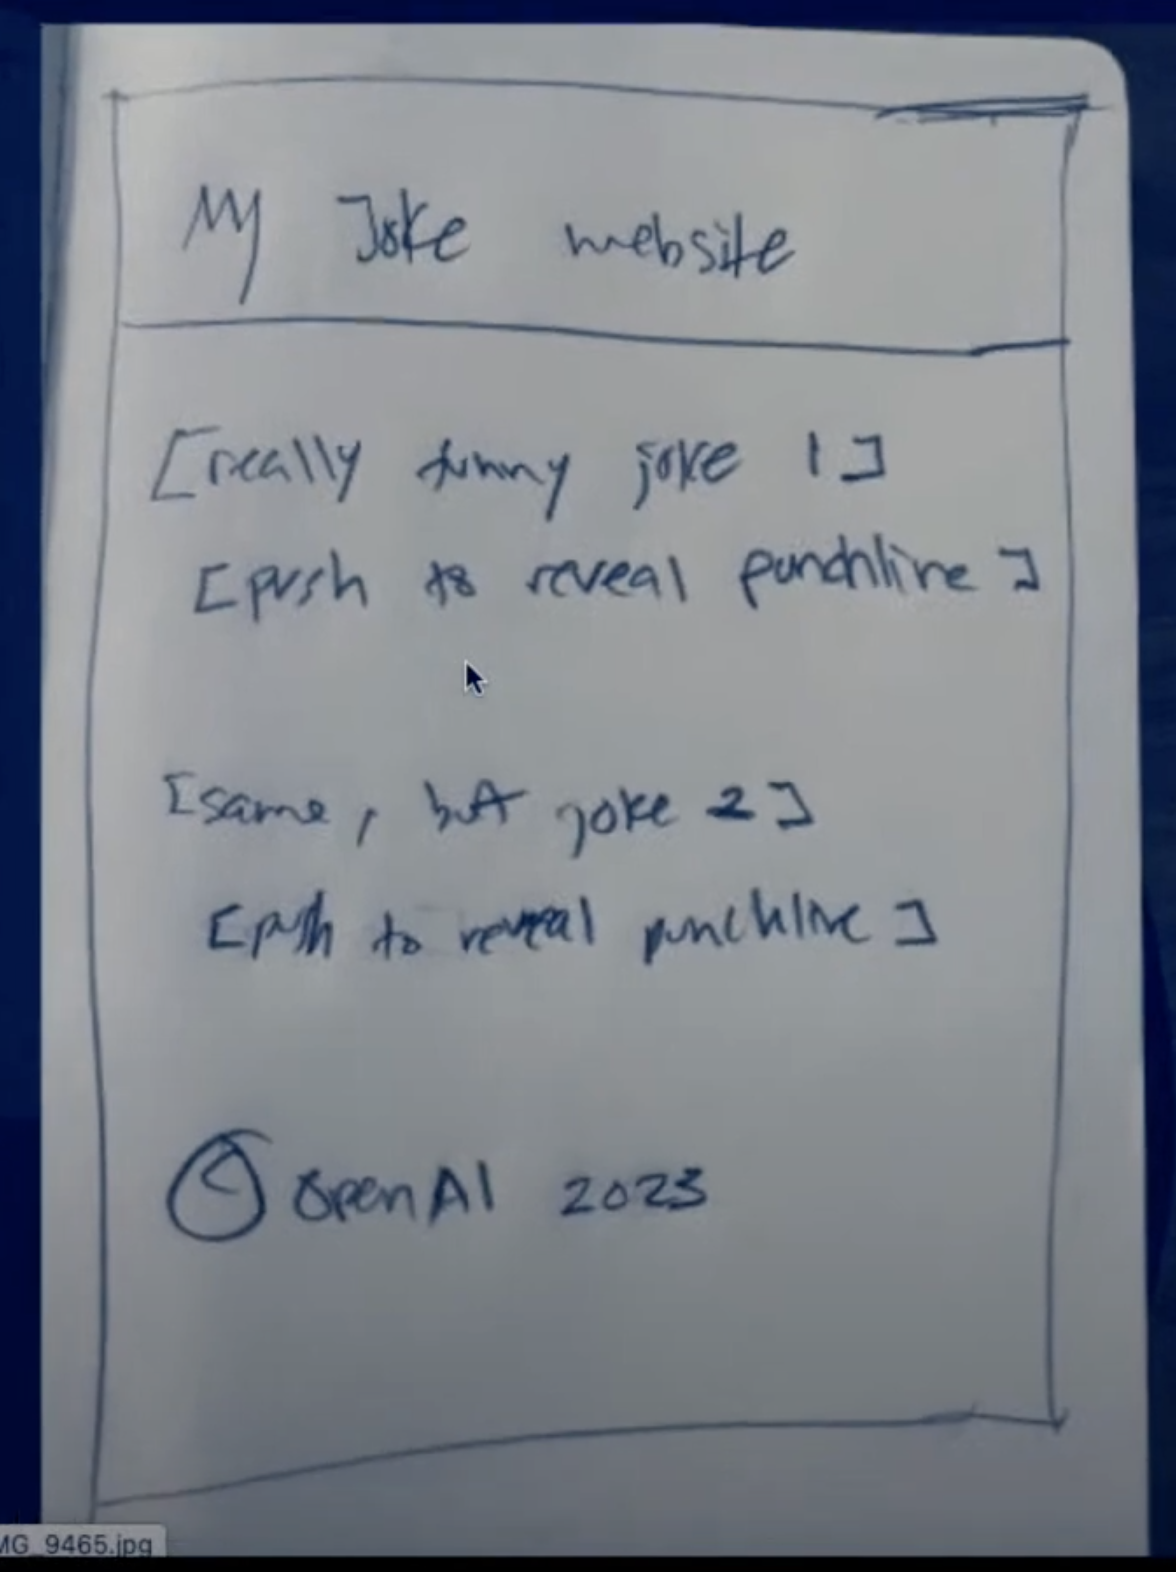 My Joke website
[really funny joke 1]
[push to reveal punchline]
[same, but joke 2]
[push to reveal punchline]
© OpenAI 2023
MG_9465.jpg